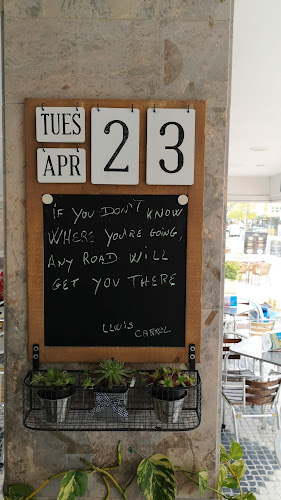 TUES 2 3
APR
IF YOU DON'T KNOW
WHERE YOU'RE GOING,
ANY ROAD WILL
GET YOU THERE
LEWIS CARROL